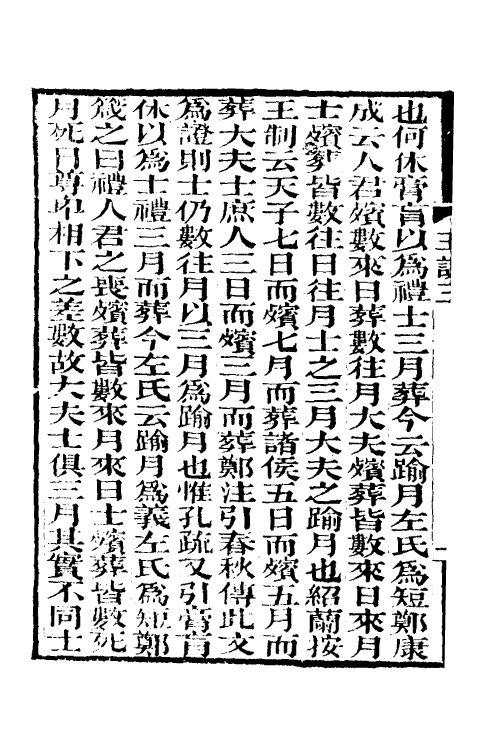 也何休膏肓以爲禮士三月葬今云踰月左氏爲短鄭康
成云人君殯數來日葬數往月大夫殯葬皆數來日來月
士殯葬皆數往日往月士之三月大夫之踰月也紹蘭按
王制云天子七日而殯七月而葬諸侯五日而殯五月而
葬大夫士庶人三日而殯三月而葬鄭注引春秋傳此文
爲證則士仍數往月以三月爲踰月也惟孔疏又引膏肓
休以爲士禮三月而葬今左氏云踰月爲義左氏爲短鄭
箴之曰禮人君之喪殯葬皆數來月來日士殯葬皆數死
月死日尊卑相下之差數故大夫士俱三月其實不同士